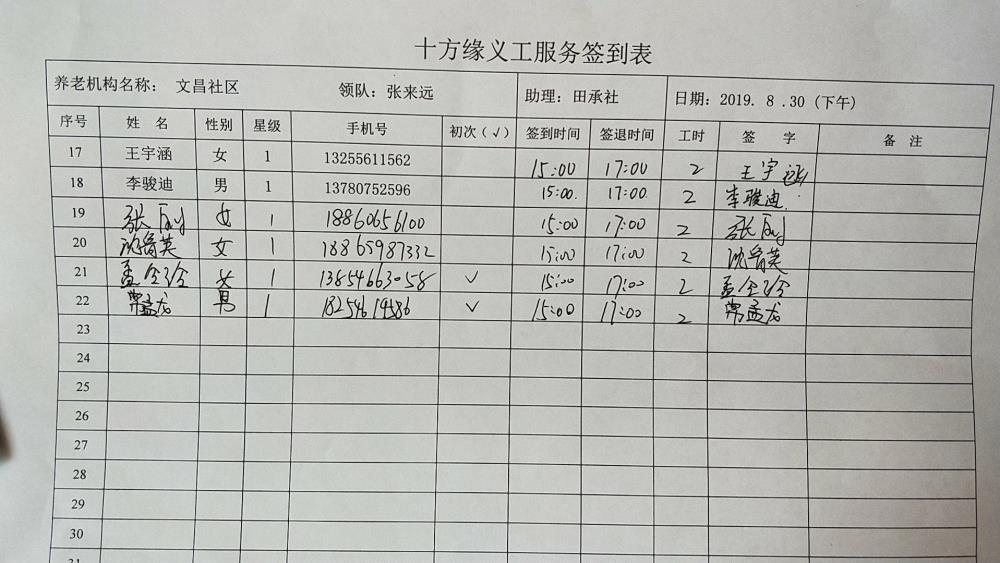 十方缘义工服务签到表
养老机构名称： 文昌社区 领队：张来远 助理：田承社 日期：2019. 8 .30 (下午)
序号 姓 名 性别 星级 手机号 初次（√） 签到时间 签退时间 工时 签 字 备 注
17 王宇涵 女 1 13255611562 15:00 17:00 2 王宇涵
18 李骏迪 男 1 13780752596 15:00. 17:00. 2 李骏迪
19 张 女 1 18860656100 15:00 17:00 2 张
20 沈鲁英 女 1 18865987332 15:00 17:00 2 沈鲁英
21 孟 女 1 13854663058 √ 15:00 17:00 2 孟
22 常孟龙 男 1 18254614586 √ 15:00 17:00 2 常孟龙
23
24
25
26
27
28
29
30
31